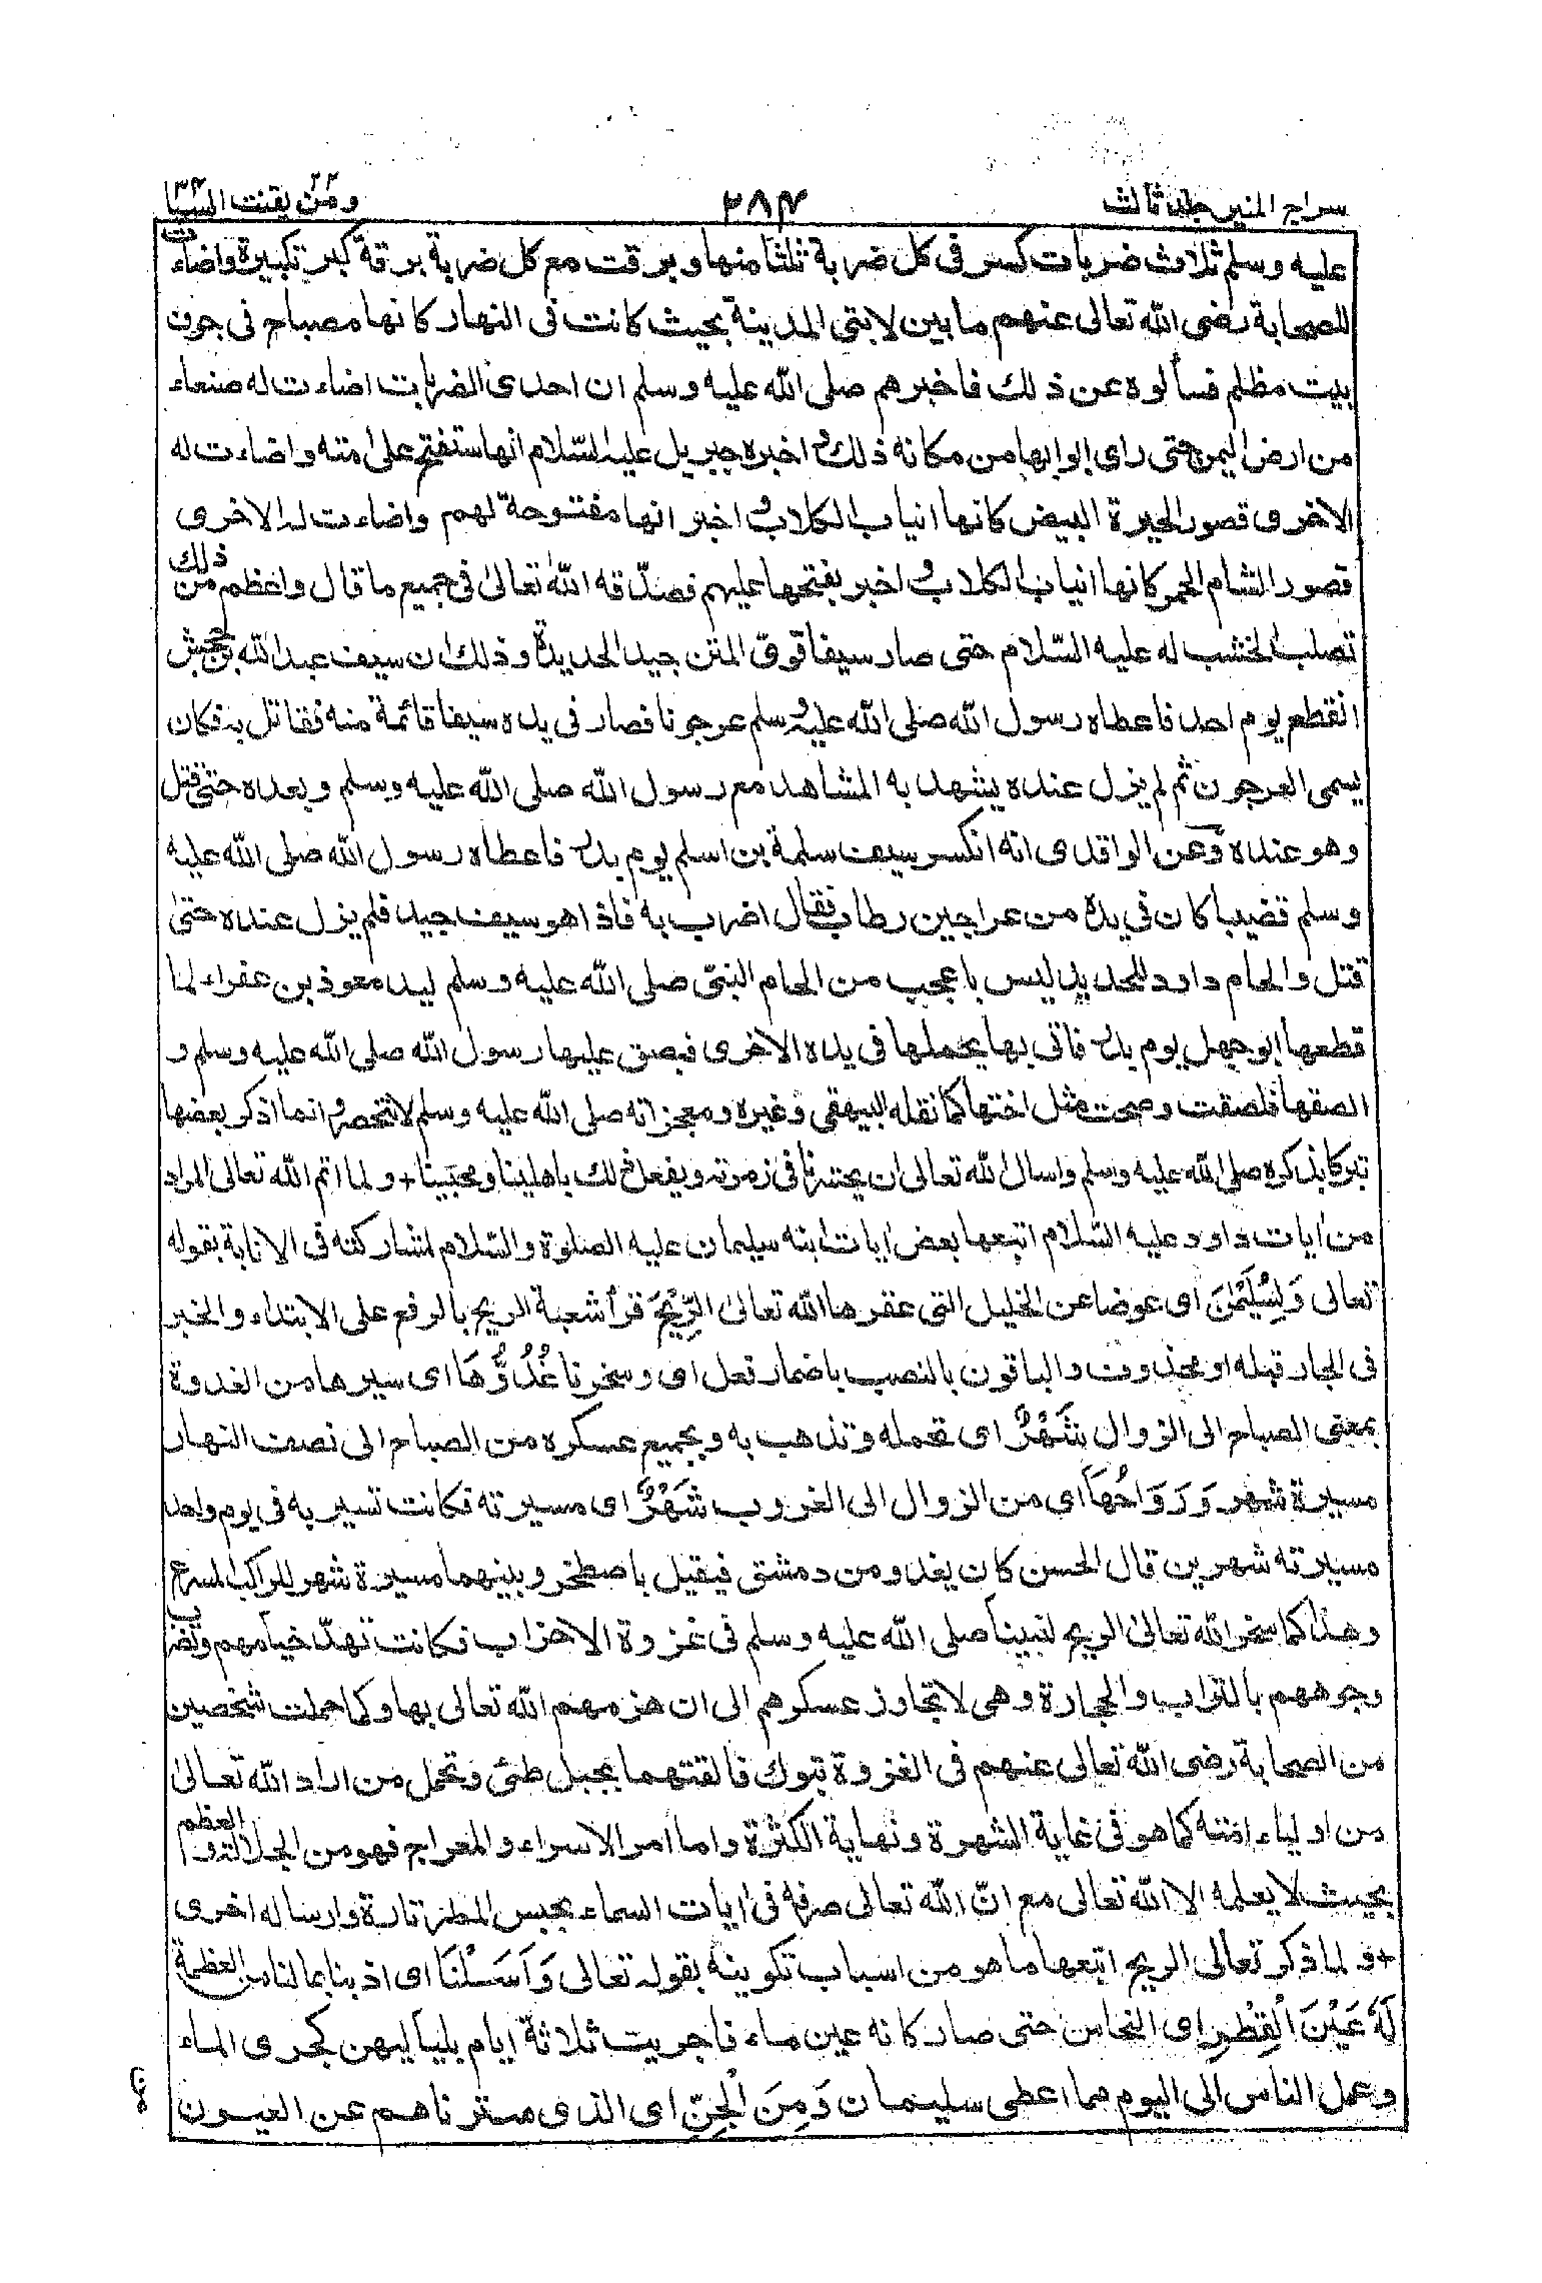 سراج المنير جلد ثالث ٢٨٤ ومن يقنت ٢٢ السبا ٣٤
عليه وسلم ثلاث ضربات كسر فى كل ضربة ثلثا منها وبرقت مع كل ضربة برقة كبر تكبيرة واضاءت
للصحابة رضى الله تعالى عنهم ما بين لابتى المدينة بحيث كانت فى النهار كانها مصباح فى جوف
بيت مظلم فسألوه عن ذلك فاخبرهم صلى الله عليه وسلم ان احدى الضربات اضاءت له صنعاء
من ارض اليمن حتى راى ابوابها من مكانه ذلك و اخبره جبريل عليه السّلام انها ستفتح على امته واضاءت له
الاخرى قصور الحيرة البيض كانها انياب الكلاب و اخبر انها مفتوحة لهم واضاءت له الاخرى
قصور الشام الحمر كانها انياب الكلاب و اخبر بفتحها عليهم فصدّقه الله تعالى فى جميع ما قال واعظم من ذلك
تصلب الخشب له عليه السّلام حتى صار سيفا قوى المتن جيد الحديدة وذلك ان سيف عبد الله بن جحش
انقطع يوم احد فاعطاه رسول الله صلى الله عليه وسلم عرجونا فصار فى يده سيفا قائمة منه فقاتل به فكان
يسمى العرجون ثم لم يزل عنده يشهد به المشاهد مع رسول الله صلى الله عليه وسلم وبعده حتى قتل
وهو عنده وعن الواقدى انه انكسر سيف سلمة بن اسلم يوم بدر فاعطاه رسول الله صلى الله عليه
وسلم قضيبا كان فى يده من عراجين رطاب فقال اضرب به فاذا هو سيف جيد فلم يزل عنده حتى
قتل والحام داود للحديد ليس باعجب من الحام النبىّ صلى الله عليه وسلم ليد معوذ بن عفراء لما
قطعها ابو جهل يوم بدر فاتى بها يحملها فى يده الاخرى فبصق عليها رسول الله صلى الله عليه وسلم و
الصقها فلصقت وصحت مثل اختها كما نقله البيهقى وغيره ومعجزاته صلى الله عليه وسلم لا تنحصر و انما اذكر بعضها
تبركا بذكره صلى الله عليه وسلم واسال الله تعالى ان يحشرنا فى زمرته ويفعل ذلك باهلينا ومحبينا + ولما اتم الله تعالى المراد
من ايات داود عليه السّلام اتبعها بعض ايات ابنه سليمان عليه الصلوة والسّلام لمشاركته فى الانابة بقوله
تعالى وَلِسُلَيْمٰنَ اى عوضا عن الخليل التى عقرها الله تعالى الرِّيْحَ قرأ شعبة الريح بالرفع على الابتداء والخبر
فى الجار قبله او محذوف والباقون بالنصب باضمار فعل اى وسخرنا غُدُوُّهَا اى سيرها من الغدوة
بمعنى الصباح الى الزوال شَهْرٌ اى تحمله وتذهب به وبجميع عسكره من الصباح الى نصف النهار
مسيرة شهر وَرَوَاحُهَا اى من الزوال الى الغروب شَهْرٌ اى مسيرته فكانت تسير به فى يوم واحد
مسيرته شهرين قال الحسن كان يغدو من دمشق فيقيل باصطخر وبينهما مسيرة شهر للراكب المسرع
وهذا كما سخر الله تعالى الريح لنبينا صلى الله عليه وسلم فى غزوة الاحزاب فكانت تهدّ خيامهم وتضرب
وجوههم بالتراب والحجارة وهى لا تجاوز عسكرهم الى ان هزمهم الله تعالى بها وكما حملت شخصين
من الصحابة رضى الله تعالى عنهم فى الغزوة تبوك فالقتهما بجبل طئى وتحمل من اراد الله تعالى
من اولياء امته كما هو فى غاية الشهرة ونهاية الكثرة واما امر الاسراء والمعراج فهو من الجلالة و العظم
بحيث لا يعلمه الا الله تعالى مع انّ الله تعالى صرفه فى ايات السماء بحبس المطر تارة وارساله اخرى
+ ولما ذكر تعالى الريح اتبعها ما هو من اسباب تكوينه بقوله تعالى وَاَسَلْنَا اى اذبنا بما لنا من العظمة
لَهٗ عَيْنَ الْقِطْرِ اى النحاس حتى صار كانه عين ماء فاجريت ثلاثة ايام بلياليهن كجرى الماء
وعمل الناس الى اليوم مما اعطى سليمان وَمِنَ الْجِنِّ اى الذى سترناهم عن العيون